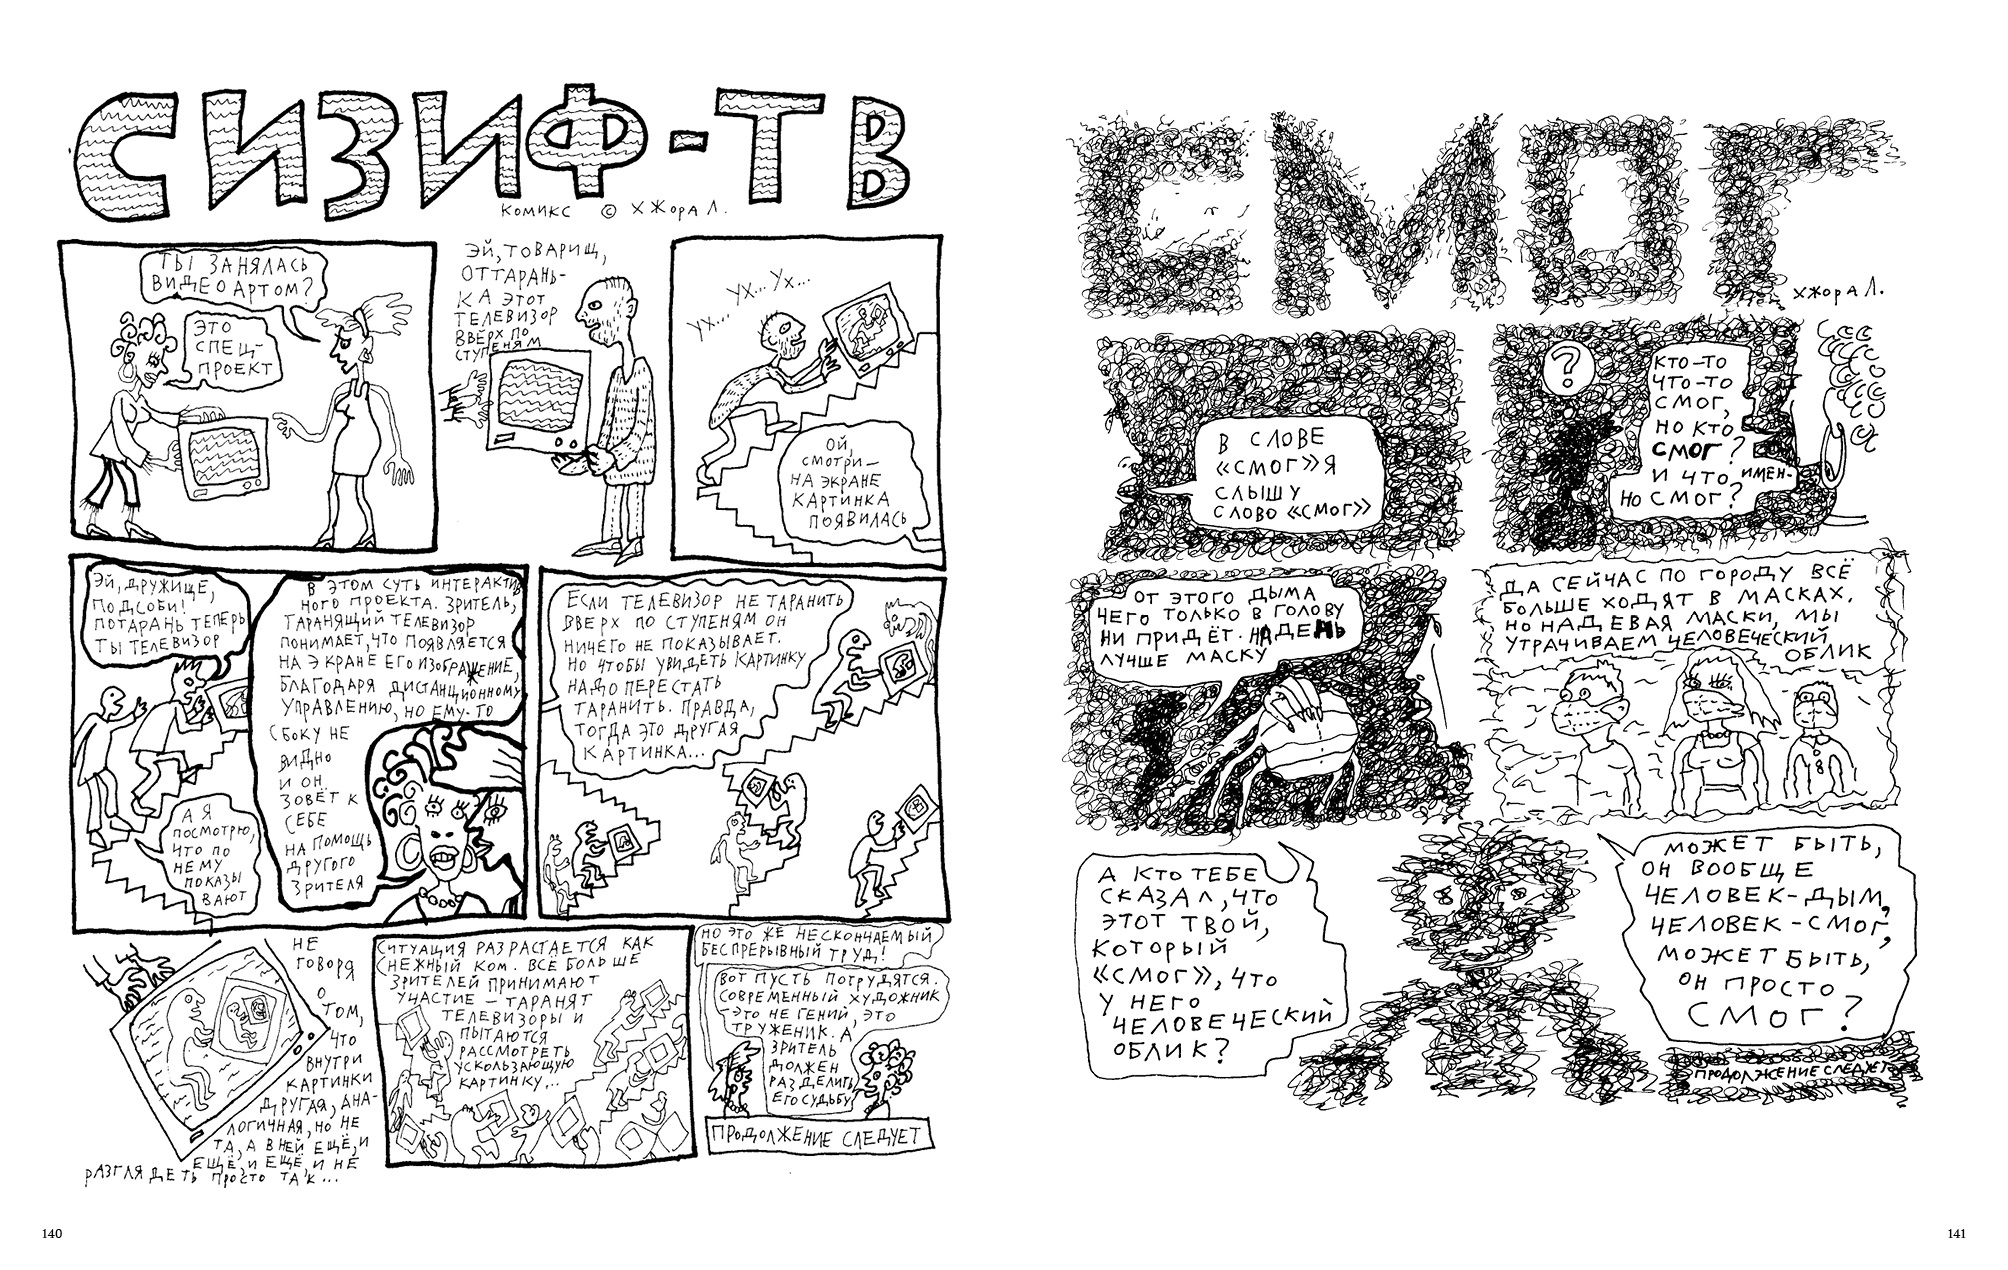 СИЗИФ-ТВ
КОМИКС © ХЖОРА Л.
ТЫ ЗАНЯЛАСЬ
ВИДЕОАРТОМ?
ЭТО
СПЕЦ-
ПРОЕКТ
ЭЙ, ТОВАРИЩ,
ОТТАРАНЬ-
КА ЭТОТ
ТЕЛЕВИЗОР
ВВЕРХ ПО
СТУПЕНЯМ
УХ... УХ... УХ...
ОЙ,
СМОТРИ —
НА ЭКРАНЕ
КАРТИНКА
ПОЯВИЛАСЬ
ЭЙ, ДРУЖИЩЕ,
ПОДСОБИ!
ПОТАРАНЬ ТЕПЕРЬ
ТЫ ТЕЛЕВИЗОР
А Я
ПОСМОТРЮ,
ЧТО ПО
НЕМУ
ПОКАЗЫ
ВАЮТ
В ЭТОМ СУТЬ ИНТЕРАКТИВ
НОГО ПРОЕКТА. ЗРИТЕЛЬ,
ТАРАНЯЩИЙ ТЕЛЕВИЗОР
ПОНИМАЕТ, ЧТО ПОЯВЛЯЕТСЯ
НА ЭКРАНЕ ЕГО ИЗОБРАЖЕНИЕ,
БЛАГОДАРЯ ДИСТАНЦИОННОМУ
УПРАВЛЕНИЮ, НО ЕМУ-ТО
СБОКУ НЕ
ВИДНО
И ОН
ЗОВЁТ К
СЕБЕ
НА ПОМОЩЬ
ДРУГОГО
ЗРИТЕЛЯ
ЕСЛИ ТЕЛЕВИЗОР НЕ ТАРАНИТЬ
ВВЕРХ ПО СТУПЕНЯМ ОН
НИЧЕГО НЕ ПОКАЗЫВАЕТ.
НО ЧТОБЫ УВИДЕТЬ КАРТИНКУ
НАДО ПЕРЕСТАТЬ
ТАРАНИТЬ. ПРАВДА,
ТОГДА ЭТО ДРУГАЯ
КАРТИНКА...
НЕ
ГОВОРЯ
О
ТОМ,
ЧТО
ВНУТРИ
КАРТИНКИ
ДРУГАЯ, АНА-
ЛОГИЧНАЯ, НО НЕ
ТА, А В НЕЙ ЕЩЁ, И
ЕЩЁ, И ЕЩЁ, И НЕ
РАЗГЛЯДЕТЬ ПРОСТО ТАК...
СИТУАЦИЯ РАЗРАСТАЕТСЯ КАК
СНЕЖНЫЙ КОМ. ВСЁ БОЛЬШЕ
ЗРИТЕЛЕЙ ПРИНИМАЮТ
УЧАСТИЕ — ТАРАНЯТ
ТЕЛЕВИЗОРЫ И
ПЫТАЮТСЯ
РАССМОТРЕТЬ
УСКОЛЬЗАЮЩУЮ
КАРТИНКУ...
НО ЭТО ЖЕ НЕСКОНЧАЕМЫЙ
БЕСПРЕРЫВНЫЙ ТРУД!
ВОТ ПУСТЬ ПОТРУДЯТСЯ.
СОВРЕМЕННЫЙ ХУДОЖНИК
— ЭТО НЕ ГЕНИЙ, ЭТО
ТРУЖЕНИК. А
ЗРИТЕЛЬ
ДОЛЖЕН
РАЗДЕЛИТЬ
ЕГО СУДЬБУ
ПРОДОЛЖЕНИЕ СЛЕДУЕТ
140
СМОГ
ХЖОРА Л.
В СЛОВЕ
«СМОГ» Я
СЛЫШУ
СЛОВО «СМОГ»
?
КТО-ТО
ЧТО-ТО
СМОГ,
НО КТО
СМОГ?
И ЧТО ИМЕН-
НО СМОГ?
ОТ ЭТОГО ДЫМА
ЧЕГО ТОЛЬКО В ГОЛОВУ
НИ ПРИДЁТ. НАДЕНЬ
ЛУЧШЕ МАСКУ
ДА СЕЙЧАС ПО ГОРОДУ ВСЁ
БОЛЬШЕ ХОДЯТ В МАСКАХ.
НО НАДЕВАЯ МАСКИ, МЫ
УТРАЧИВАЕМ ЧЕЛОВЕЧЕСКИЙ
ОБЛИК
А КТО ТЕБЕ
СКАЗАЛ, ЧТО
ЭТОТ ТВОЙ,
КОТОРЫЙ
«СМОГ», ЧТО
У НЕГО
ЧЕЛОВЕЧЕСКИЙ
ОБЛИК?
МОЖЕТ БЫТЬ,
ОН ВООБЩЕ
ЧЕЛОВЕК-ДЫМ,
ЧЕЛОВЕК-СМОГ,
МОЖЕТ БЫТЬ,
ОН ПРОСТО
СМОГ?
ПРОДОЛЖЕНИЕ СЛЕДУЕТ
141